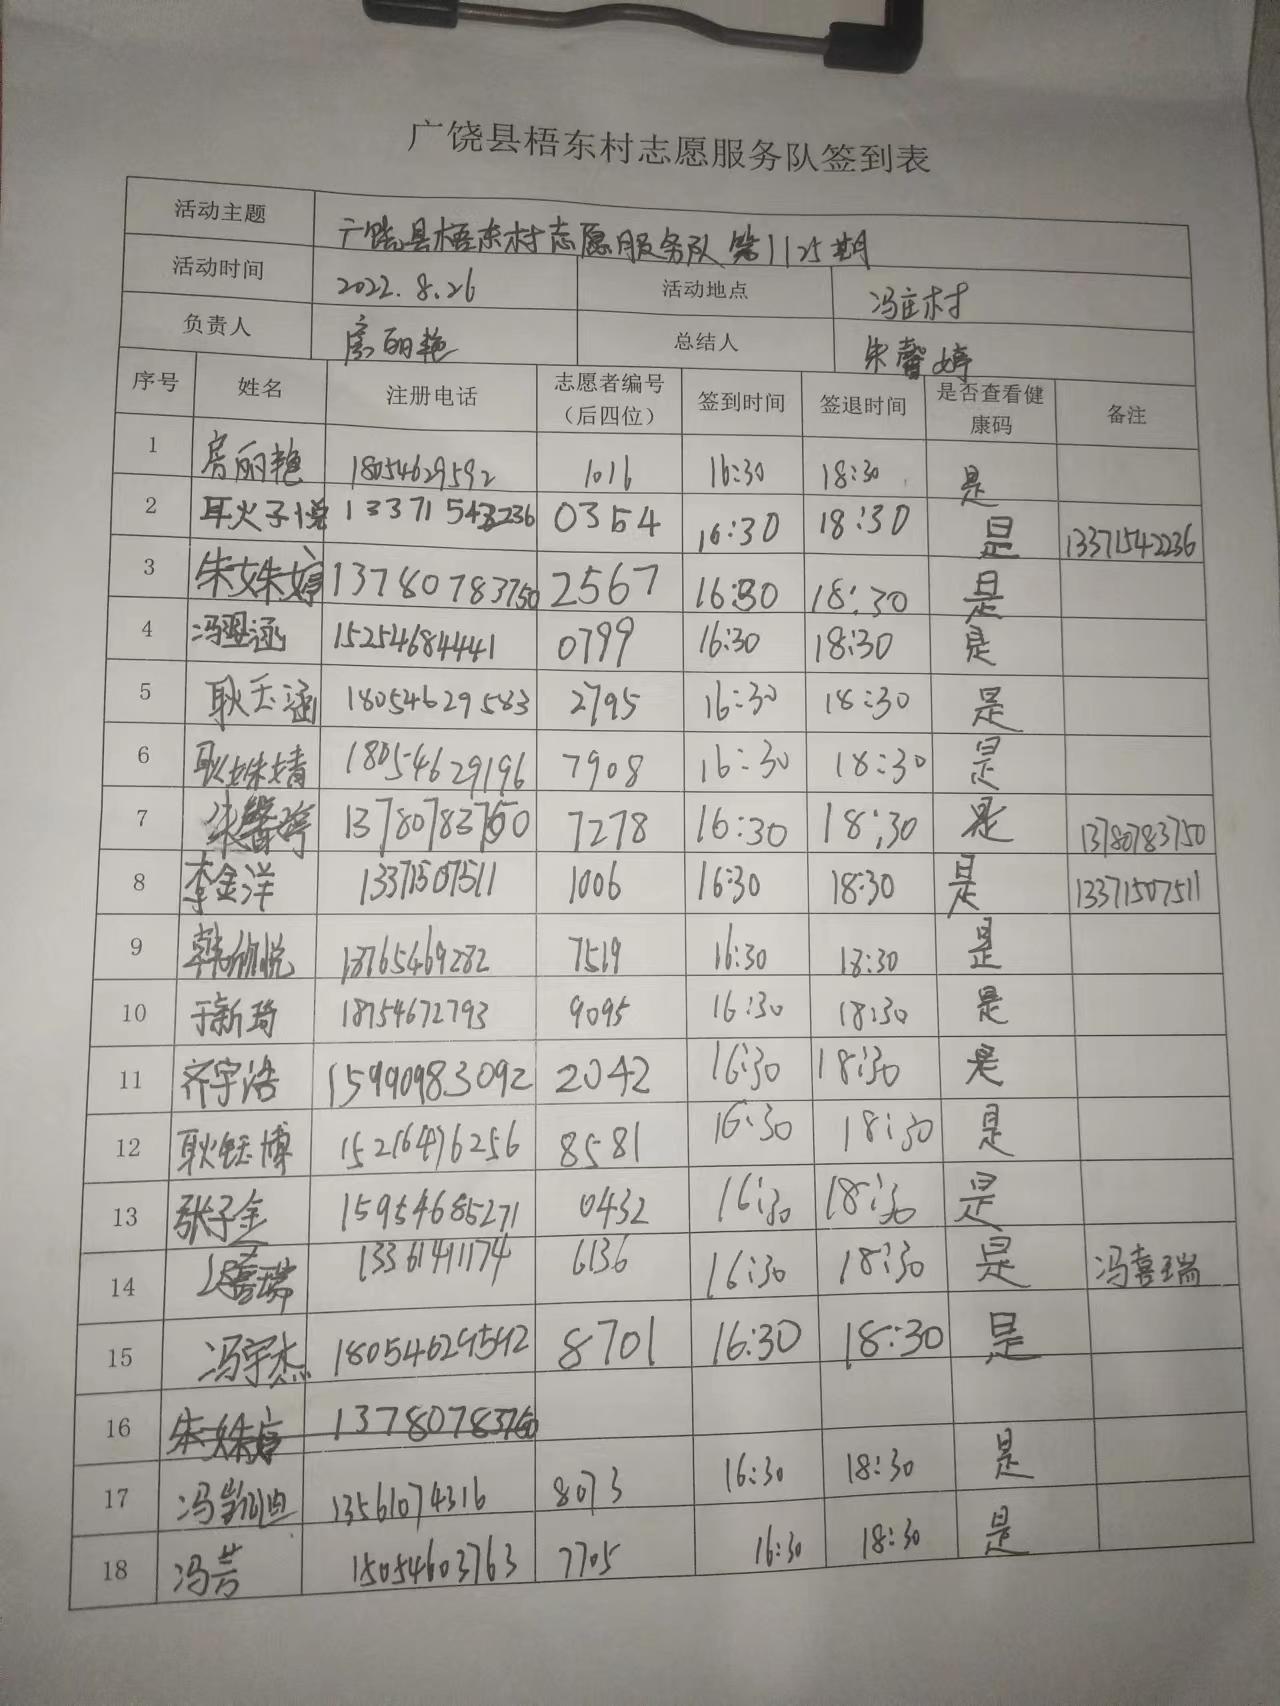 广饶县梧东村志愿服务队签到表
活动主题 广饶县梧东村志愿服务队第1125期
活动时间 2022.8.26 活动地点 冯庄村
负责人 房丽艳 总结人 朱馨婷
序号 姓名 注册电话 志愿者编号（后四位） 签到时间 签退时间 是否查看健康码 备注
1 房丽艳 18054629592 1016 16:30 18:30 是
2 耿子悦 0354 16:30 18:30 是 13371542236
3 朱姝婷 13780783750 2567 16:30 18:30 是
4 15254684441 0799 16:30 18:30 是
5 耿玉涵 18054629583 2795 16:30 18:30 是
6 耿姝婧 18054629196 7908 16:30 18:30 是
7 朱馨婷 7278 16:30 18:30 是 13780783750
8 李金洋 13371507511 1006 16:30 18:30 是 13371507511
9 韩欣悦 18765469282 7519 16:30 18:30 是
10 于新琦 18754672793 9095 16:30 18:30 是
11 齐宇浩 15990983092 2042 16:30 18:30 是
12 耿钰博 15216476256 8581 16:30 18:30 是
13 张子金 15954685271 0432 16:30 18:30 是
14 13361411174 6136 16:30 18:30 是 冯喜瑞
15 冯宇杰 18054629592 8701 16:30 18:30 是
16
17 13561074316 8073 16:30 18:30 是
18 冯芸 15054603763 7705 16:30 18:30 是